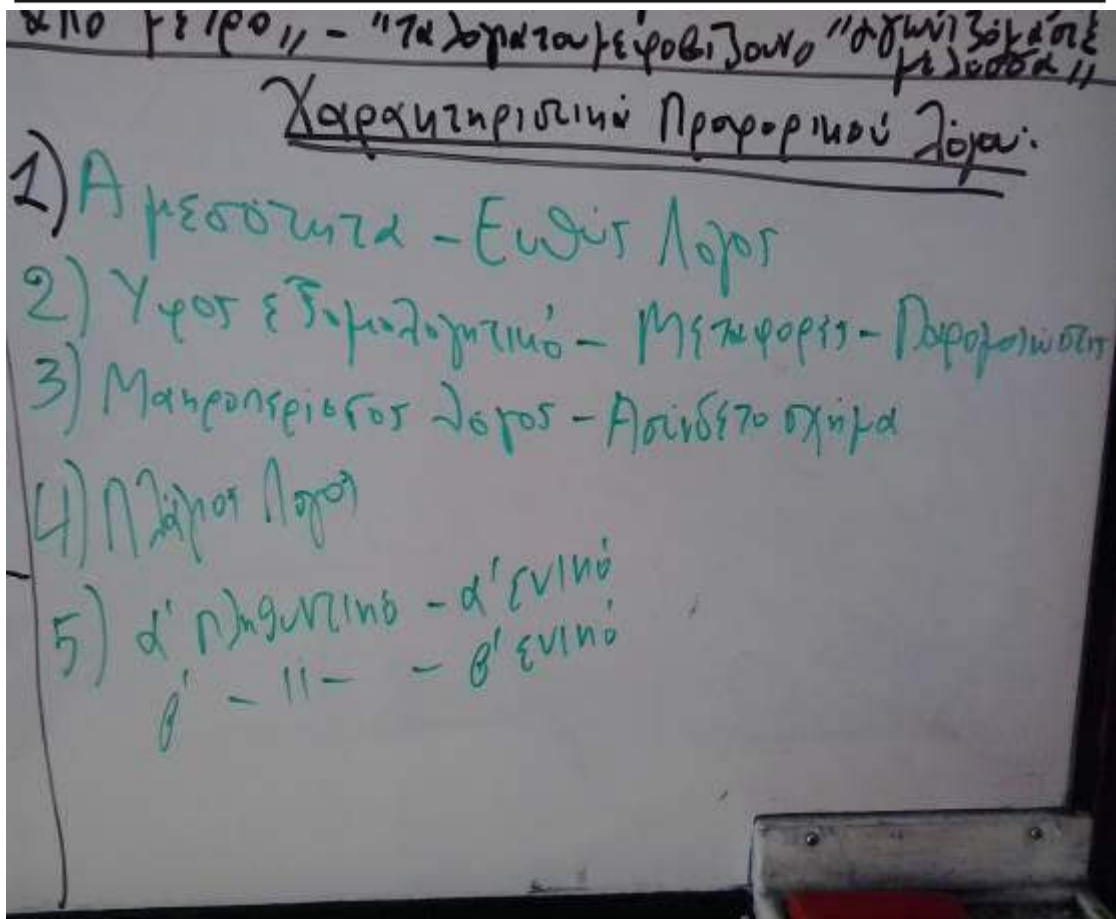 από μέτρο,, - "τα λόγια του με φοβίζουν,, "αγωνιζόμαστε
με λύσσα,,
Χαρακτηριστικά Προφορικού Λόγου:
1) Αμεσότητα - Ευθύς Λόγος
2) Υφος εξομολογητικό - Μεταφορές - Παρομοιώσεις
3) Μακροπερίοδος λόγος - Ασύνδετο σχήμα
4) Πλάγιος Λόγος
5) α' πληθυντικό - α' ενικό
β' - 11 - - β' ενικό